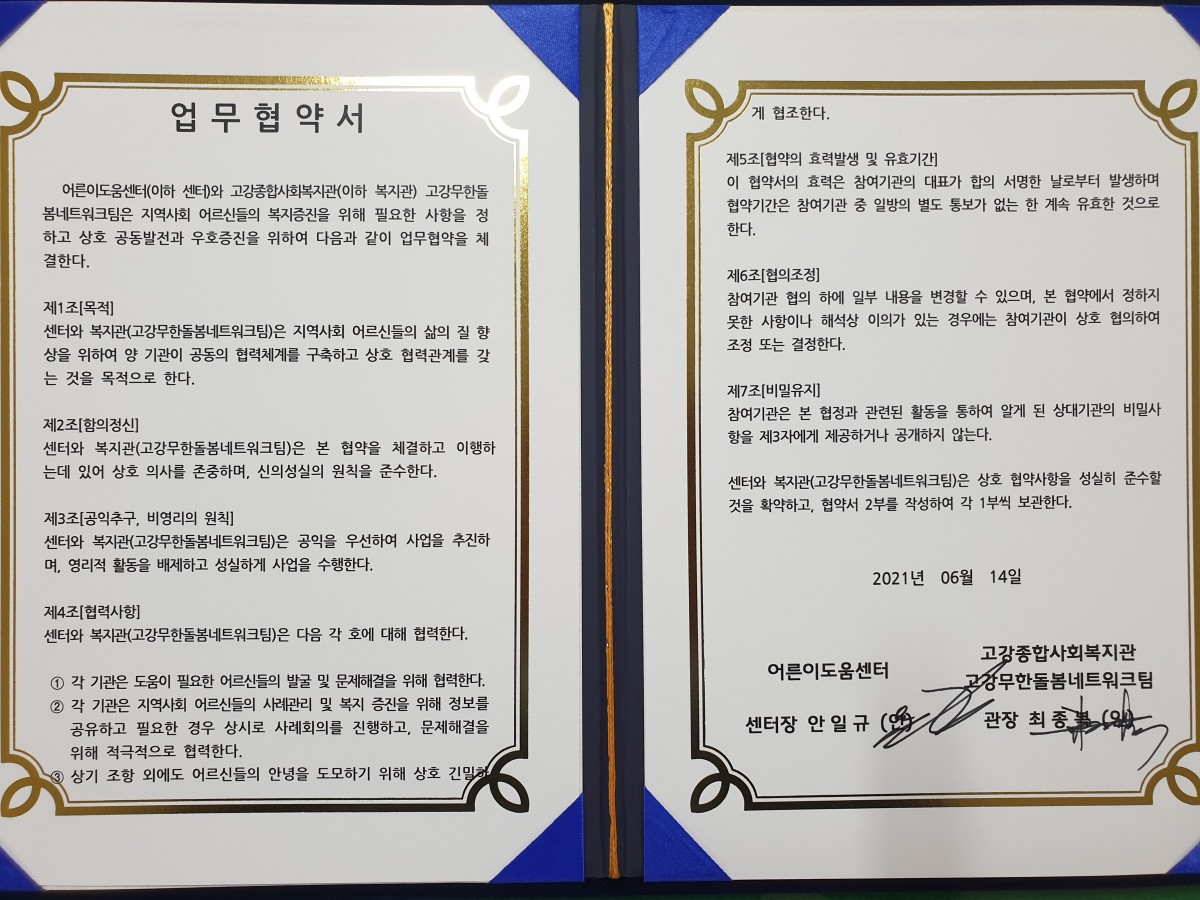 업무협약서
어른이도움센터(이하 센터)와 고강종합사회복지관(이하 복지관) 고강무한돌
봄네트워크팀은 지역사회 어르신들의 복지증진을 위해 필요한 사항을 정
하고 상호 공동발전과 우호증진을 위하여 다음과 같이 업무협약을 체
결한다.
제1조[목적]
센터와 복지관(고강무한돌봄네트워크팀)은 지역사회 어르신들의 삶의 질 향
상을 위하여 양 기관이 공동의 협력체계를 구축하고 상호 협력관계를 갖
는 것을 목적으로 한다.
제2조[함의정신]
센터와 복지관(고강무한돌봄네트워크팀)은 본 협약을 체결하고 이행하
는데 있어 상호 의사를 존중하며, 신의성실의 원칙을 준수한다.
제3조[공익추구, 비영리의 원칙]
센터와 복지관(고강무한돌봄네트워크팀)은 공익을 우선하여 사업을 추진하
며, 영리적 활동을 배제하고 성실하게 사업을 수행한다.
제4조[협력사항]
센터와 복지관(고강무한돌봄네트워크팀)은 다음 각 호에 대해 협력한다.
① 각 기관은 도움이 필요한 어르신들의 발굴 및 문제해결을 위해 협력한다.
② 각 기관은 지역사회 어르신들의 사례관리 및 복지 증진을 위해 정보를
공유하고 필요한 경우 상시로 사례회의를 진행하고, 문제해결을
위해 적극적으로 협력한다.
③ 상기 조항 외에도 어르신들의 안녕을 도모하기 위해 상호 긴밀하
게 협조한다.
제5조[협약의 효력발생 및 유효기간]
이 협약서의 효력은 참여기관의 대표가 합의 서명한 날로부터 발생하며
협약기간은 참여기관 중 일방의 별도 통보가 없는 한 계속 유효한 것으로
한다.
제6조[협의조정]
참여기관 협의 하에 일부 내용을 변경할 수 있으며, 본 협약에서 정하지
못한 사항이나 해석상 이의가 있는 경우에는 참여기관이 상호 협의하여
조정 또는 결정한다.
제7조[비밀유지]
참여기관은 본 협정과 관련된 활동을 통하여 알게 된 상대기관의 비밀사
항을 제3자에게 제공하거나 공개하지 않는다.
센터와 복지관(고강무한돌봄네트워크팀)은 상호 협약사항을 성실히 준수할
것을 확약하고, 협약서 2부를 작성하여 각 1부씩 보관한다.
2021년 06월 14일
어른이도움센터
센터장 안일규 (인)
고강종합사회복지관
고강무한돌봄네트워크팀
관장 최종복 (인)